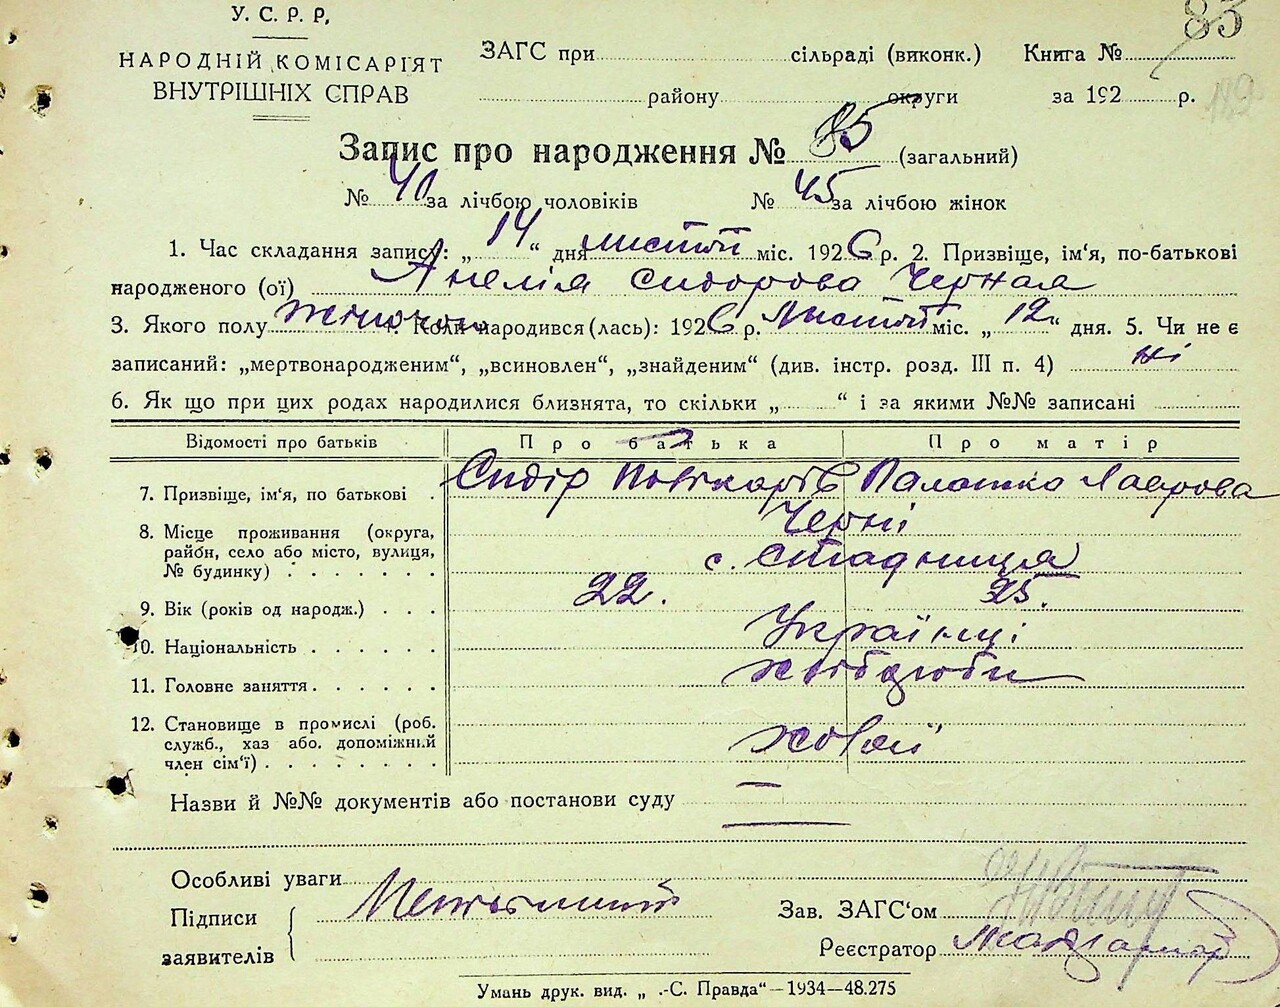 83
У. С. Р. Р.
НАРОДНІЙ КОМІСАРІЯТ
ВНУТРІШНІХ СПРАВ
ЗАГС при сільраді (виконк.) Книга №
району округи за 192 р.
Запис про народження № 85 (загальний)
№ 40 за лічбою чоловіків № 45 за лічбою жінок
1. Час складання запису: „ 14 “ дня листоп міс. 1926 р. 2. Призвіще, ім'я, по-батькові
народженого (ої) Анелія Сидорова Черная
3. Якого полу жіночого Коли народився (лась): 1926 р. Листоп міс. „ 12 “ дня. 5. Чи не є
записаний: „мертвонародженим“, „всиновлен“, „знайденим“ (див. інстр. розд. III п. 4) ні
6. Як що при цих родах народилися близнята, то скільки „ “ і за якими №№ записані
Відомості про батьків Про батька Про матір
7. Призвіще, ім'я, по батькові . Сидір Палашка Лаврова
Черні
8. Місце проживання (округа,
район, село або місто, вулиця,
№ будинку) с. Стадниця
9. Вік (років од народж.) 22. 25.
10. Національність Українці
11. Головне заняття хлібороби
12. Становище в промислі (роб.
служб., хаз або. допоміжний
член сім'ї)
Назви й №№ документів або постанови суду
Особливі уваги
Підписи
заявителів
Зав. ЗАГС'ом
Реєстратор
Умань друк. вид. „ .-С. Правда“—1934—48.275